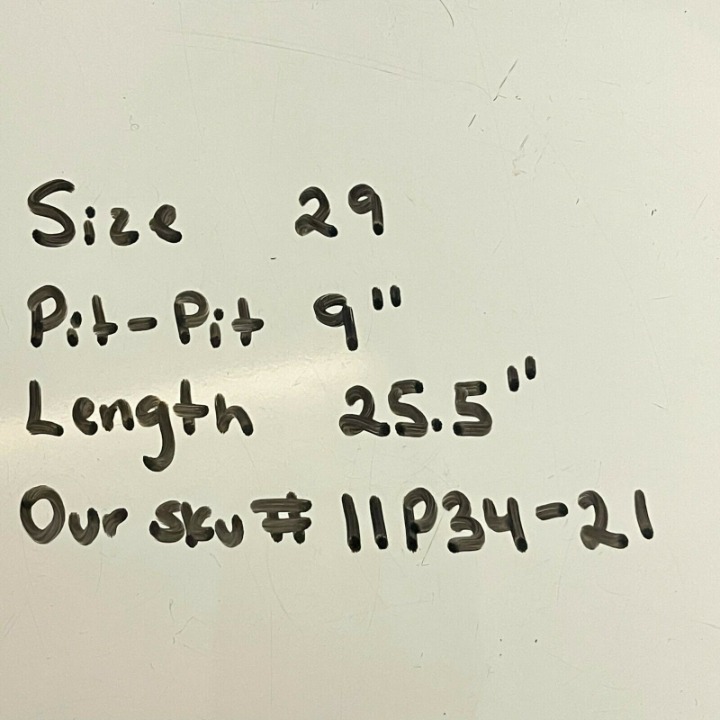 Size 29
Pit-Pit 9"
Length 25.5"
Our sku # 11P34-21